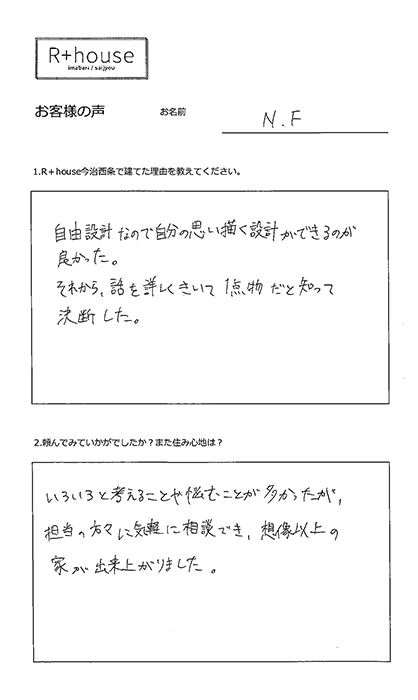 R+house
imabari / saijyou
お客様の声 お名前 N.F
1.R+house今治西条で建てた理由を教えてください。
自由設計なので自分の思い描く設計ができるのが
良かった。
それから、話を詳しくきいて1点物だと知って
決断した。
2.頼んでみていかがでしたか?また住み心地は?
いろいろと考えることや悩むことが多かったが、
担当の方々に気軽に相談でき、想像以上の
家が出来上がりました。